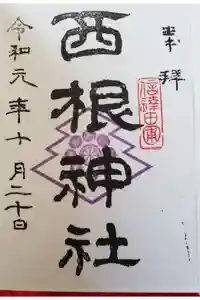 奉拝
西根神社
令和元年十月二十日